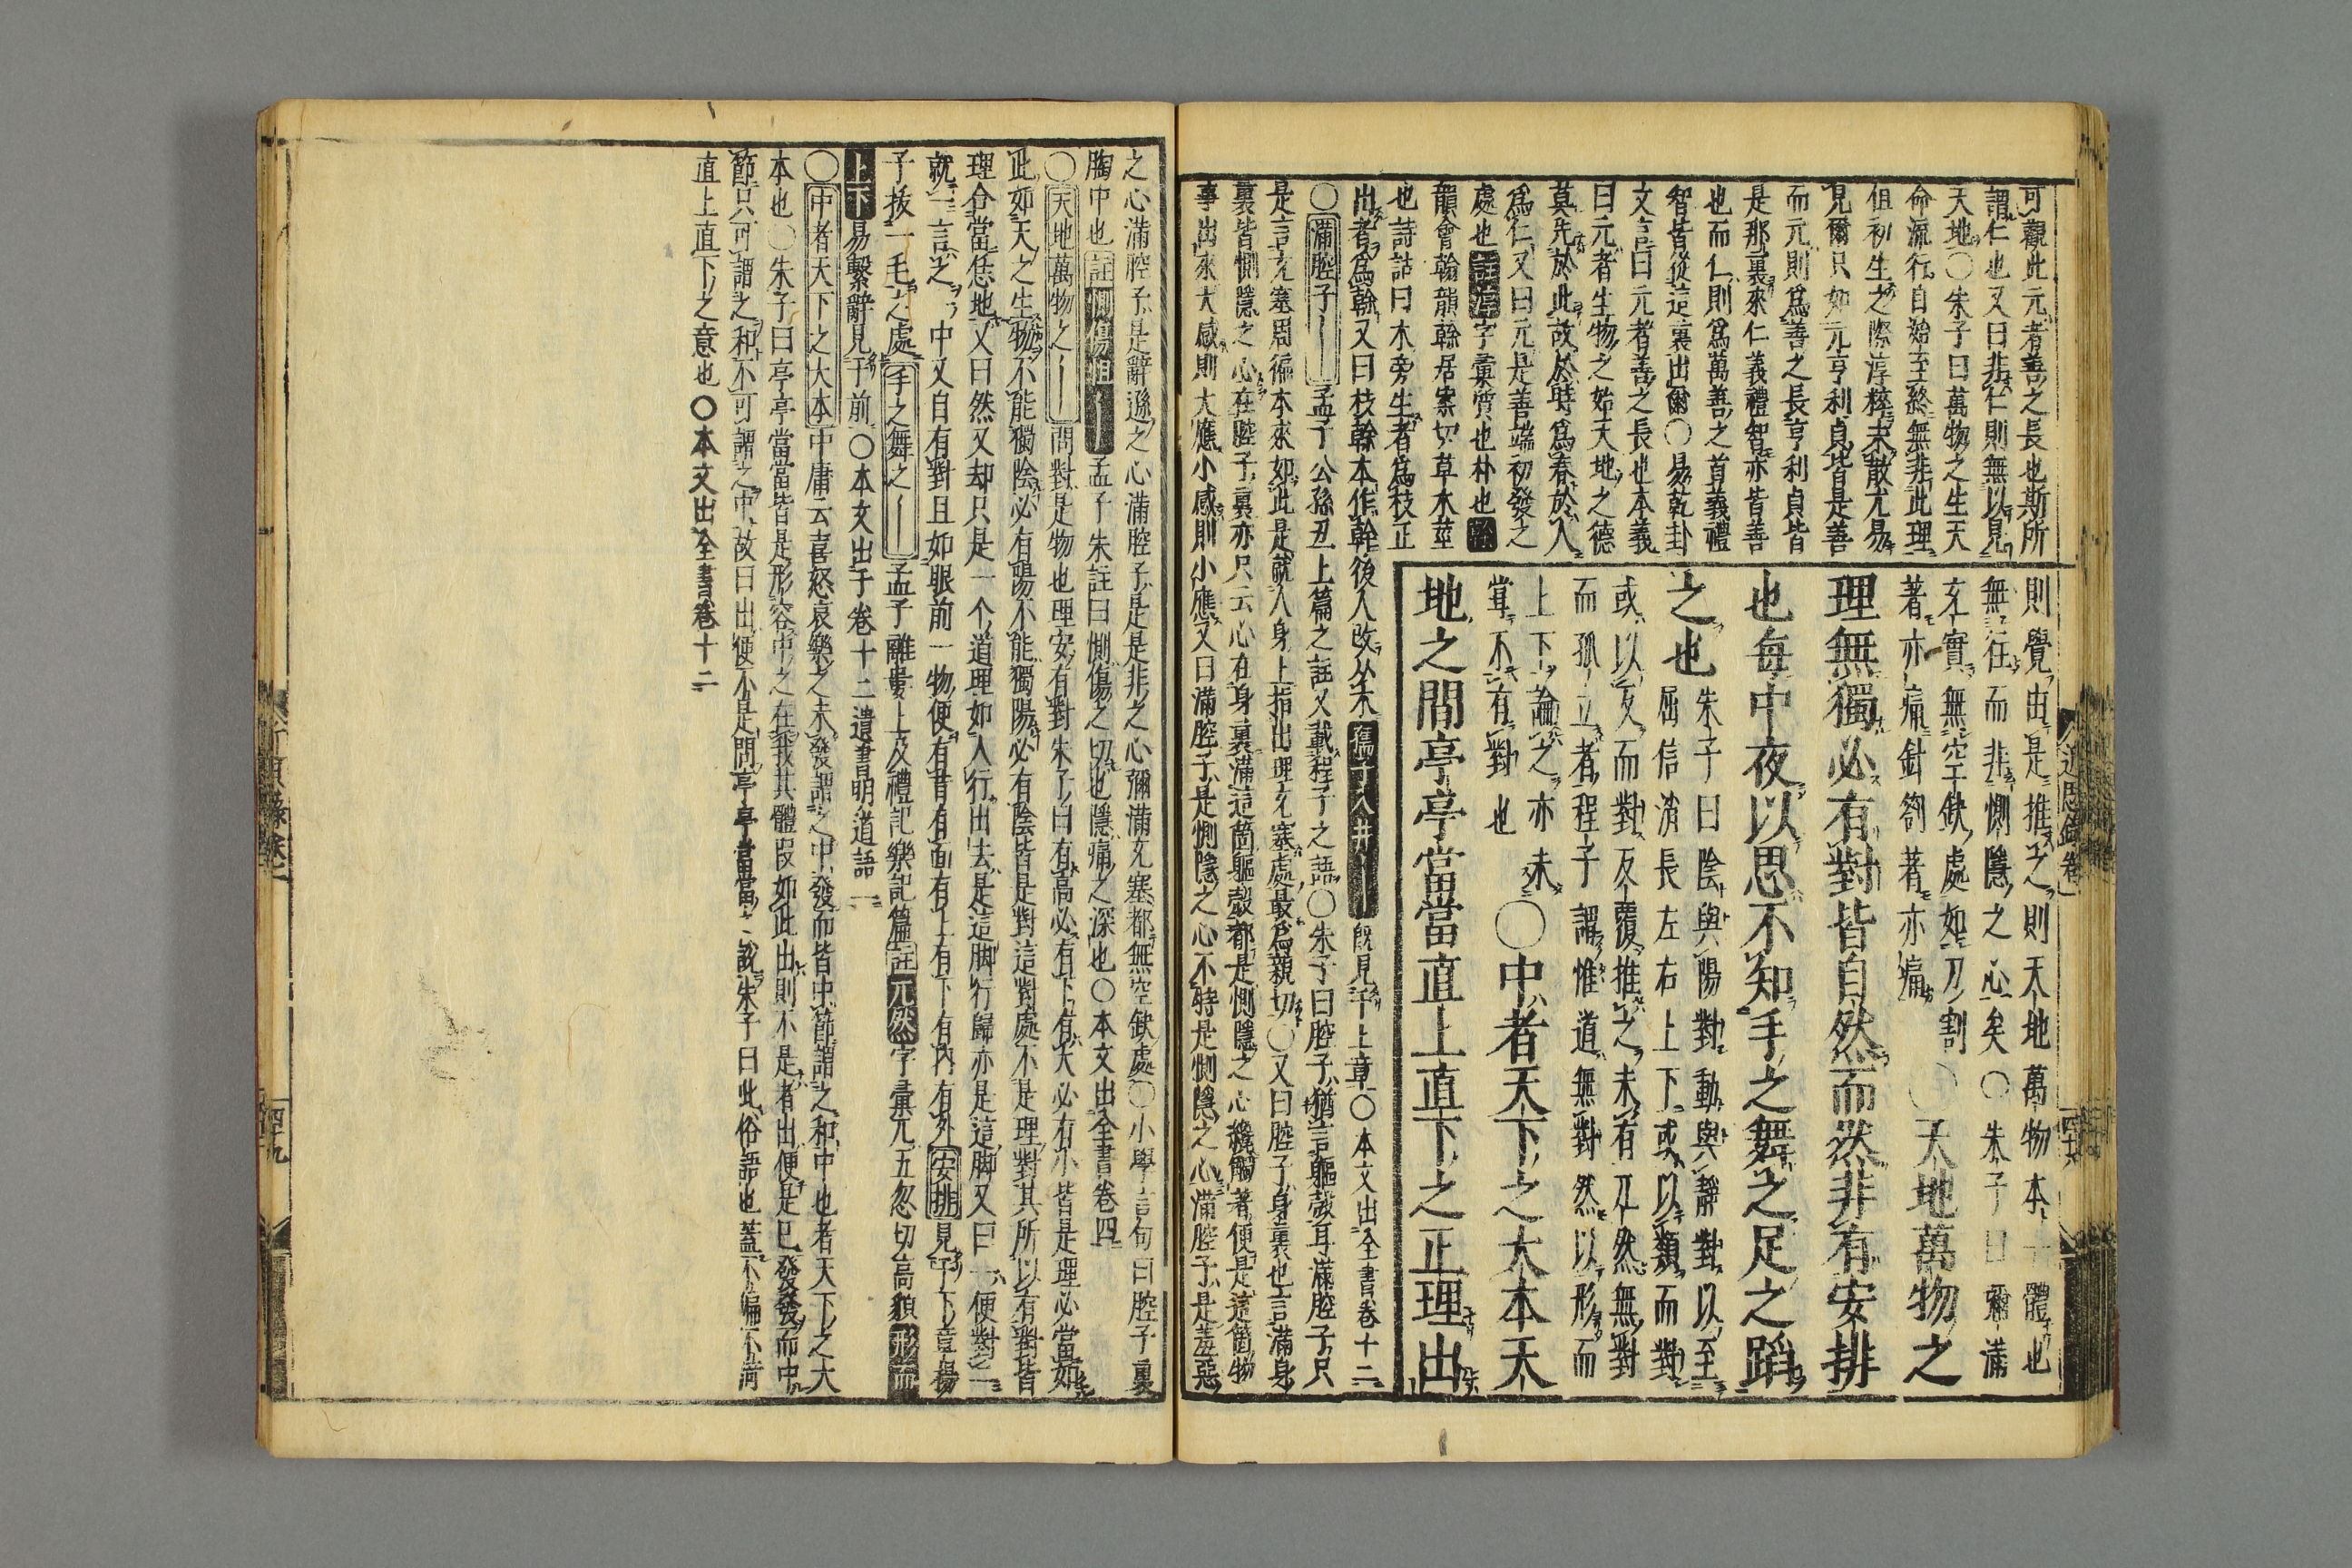 可觀此元者善之長也斯所
謂仁也又曰非仁則無以見
天地○朱子曰萬物之生天
命流行自始至終無非此理
但初生之際淳粹未散尤易
見爾只如元亨利貞皆是善
而元則爲善之長亨利貞皆
是那裏來仁義禮智亦皆善
也而仁則爲萬善之首義禮
智皆從這裏出爾○易乾卦
文言曰元者善之長也本義
曰元者生物之始天地之德
莫先於此故於時爲春於人
爲仁又曰元是善端初發之
處也註淳字彙質也朴也
韻會翰韻榦居案切草木莖
也詩詁曰木旁生者爲枝正
出者爲榦又曰枝榦本作榦後人改从木孺子入井｜旣見于上章○本文出全書卷十二
則覺由是推之則天地萬物本一體也
無往而非惻隱之心矣○朱子曰彌滿
充實無空缺處如刀割
著亦痛針劄著亦痛
○天地萬物之
理無獨必有對皆自然而然非有安排
也每中夜以思不知手之舞之足之蹈
之也
朱子曰陰與陽對動與靜對以至
屈信消長左右上下或以類而對
或以反而對反覆推之未有兀然無對
而孤立者程子謂惟道無對然以形而
上下論之亦未
嘗不有對也
○中者天下之大本天
地之間亭亭當當直上直下之正理出
○滿腔子｜孟子公孫丑上篇之註又載程子之語○朱子曰腔子猶言軀殼耳滿腔子只
是言充塞周徧本來如此是就人身上指出理充塞處最爲親切○又曰腔子身裏也言滿身
裏皆惻隱之心在腔子裏亦只云心在身裏滿這箇軀殼都是惻隱之心纔觸著便是這箇物
事出來大感則大應小感則小應又曰滿腔子是惻隱之心不特是惻隱之心滿腔子是羞惡
之心滿腔子是辭遜之心滿腔子是是非之心彌滿充塞都無空缺處○小學言句曰腔子裏
胸中也註惻傷怛｜孟子朱註曰惻傷之切也隱痛之深也○本文出全書卷四
○天地萬物之｜問對是物也理安有對朱子曰有高必有下有大必有小皆是理必當如
此如天之生物不能獨陰必有陽不能獨陽必有陰皆是對這對處不是理對其所以有對皆
理合當恁地又曰然又却只是一个道理如人行出去是這脚行歸亦是這脚又曰一便對二
就一言之中又自有對且如眼前一物便有背有面有上有下有內有外安排見于下章楊
子拔一毛之處手之舞之｜孟子離婁上及禮記樂記篇註兀然字彙兀五忽切高貌形而
上下易繫辭見于前○本文出于卷十二遺書明道語一
○中者天下之大本中庸云喜怒哀樂之未發謂之中發而皆中節謂之和中也者天下之大
本也○朱子曰亭亭當當皆是形容中之在我其體段如此出則不是者出便是已發發而中
節只可謂之和不可謂之中故曰出便不是問亭亭當當之說朱子曰此俗語也蓋不偏不倚
直上直下之意也○本文出全書卷十二